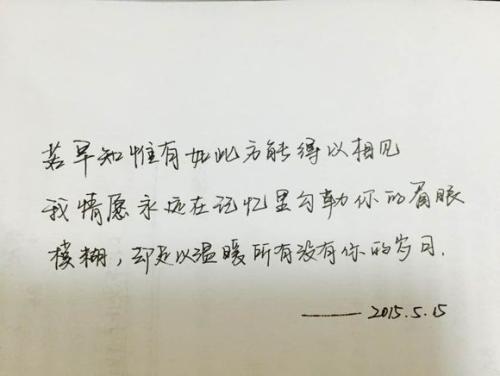 若早知惟有如此方能得以相见
我情愿永远在记忆里勾勒你的眉眼
模糊，却足以温暖所有没有你的岁月.
——2015.5.15